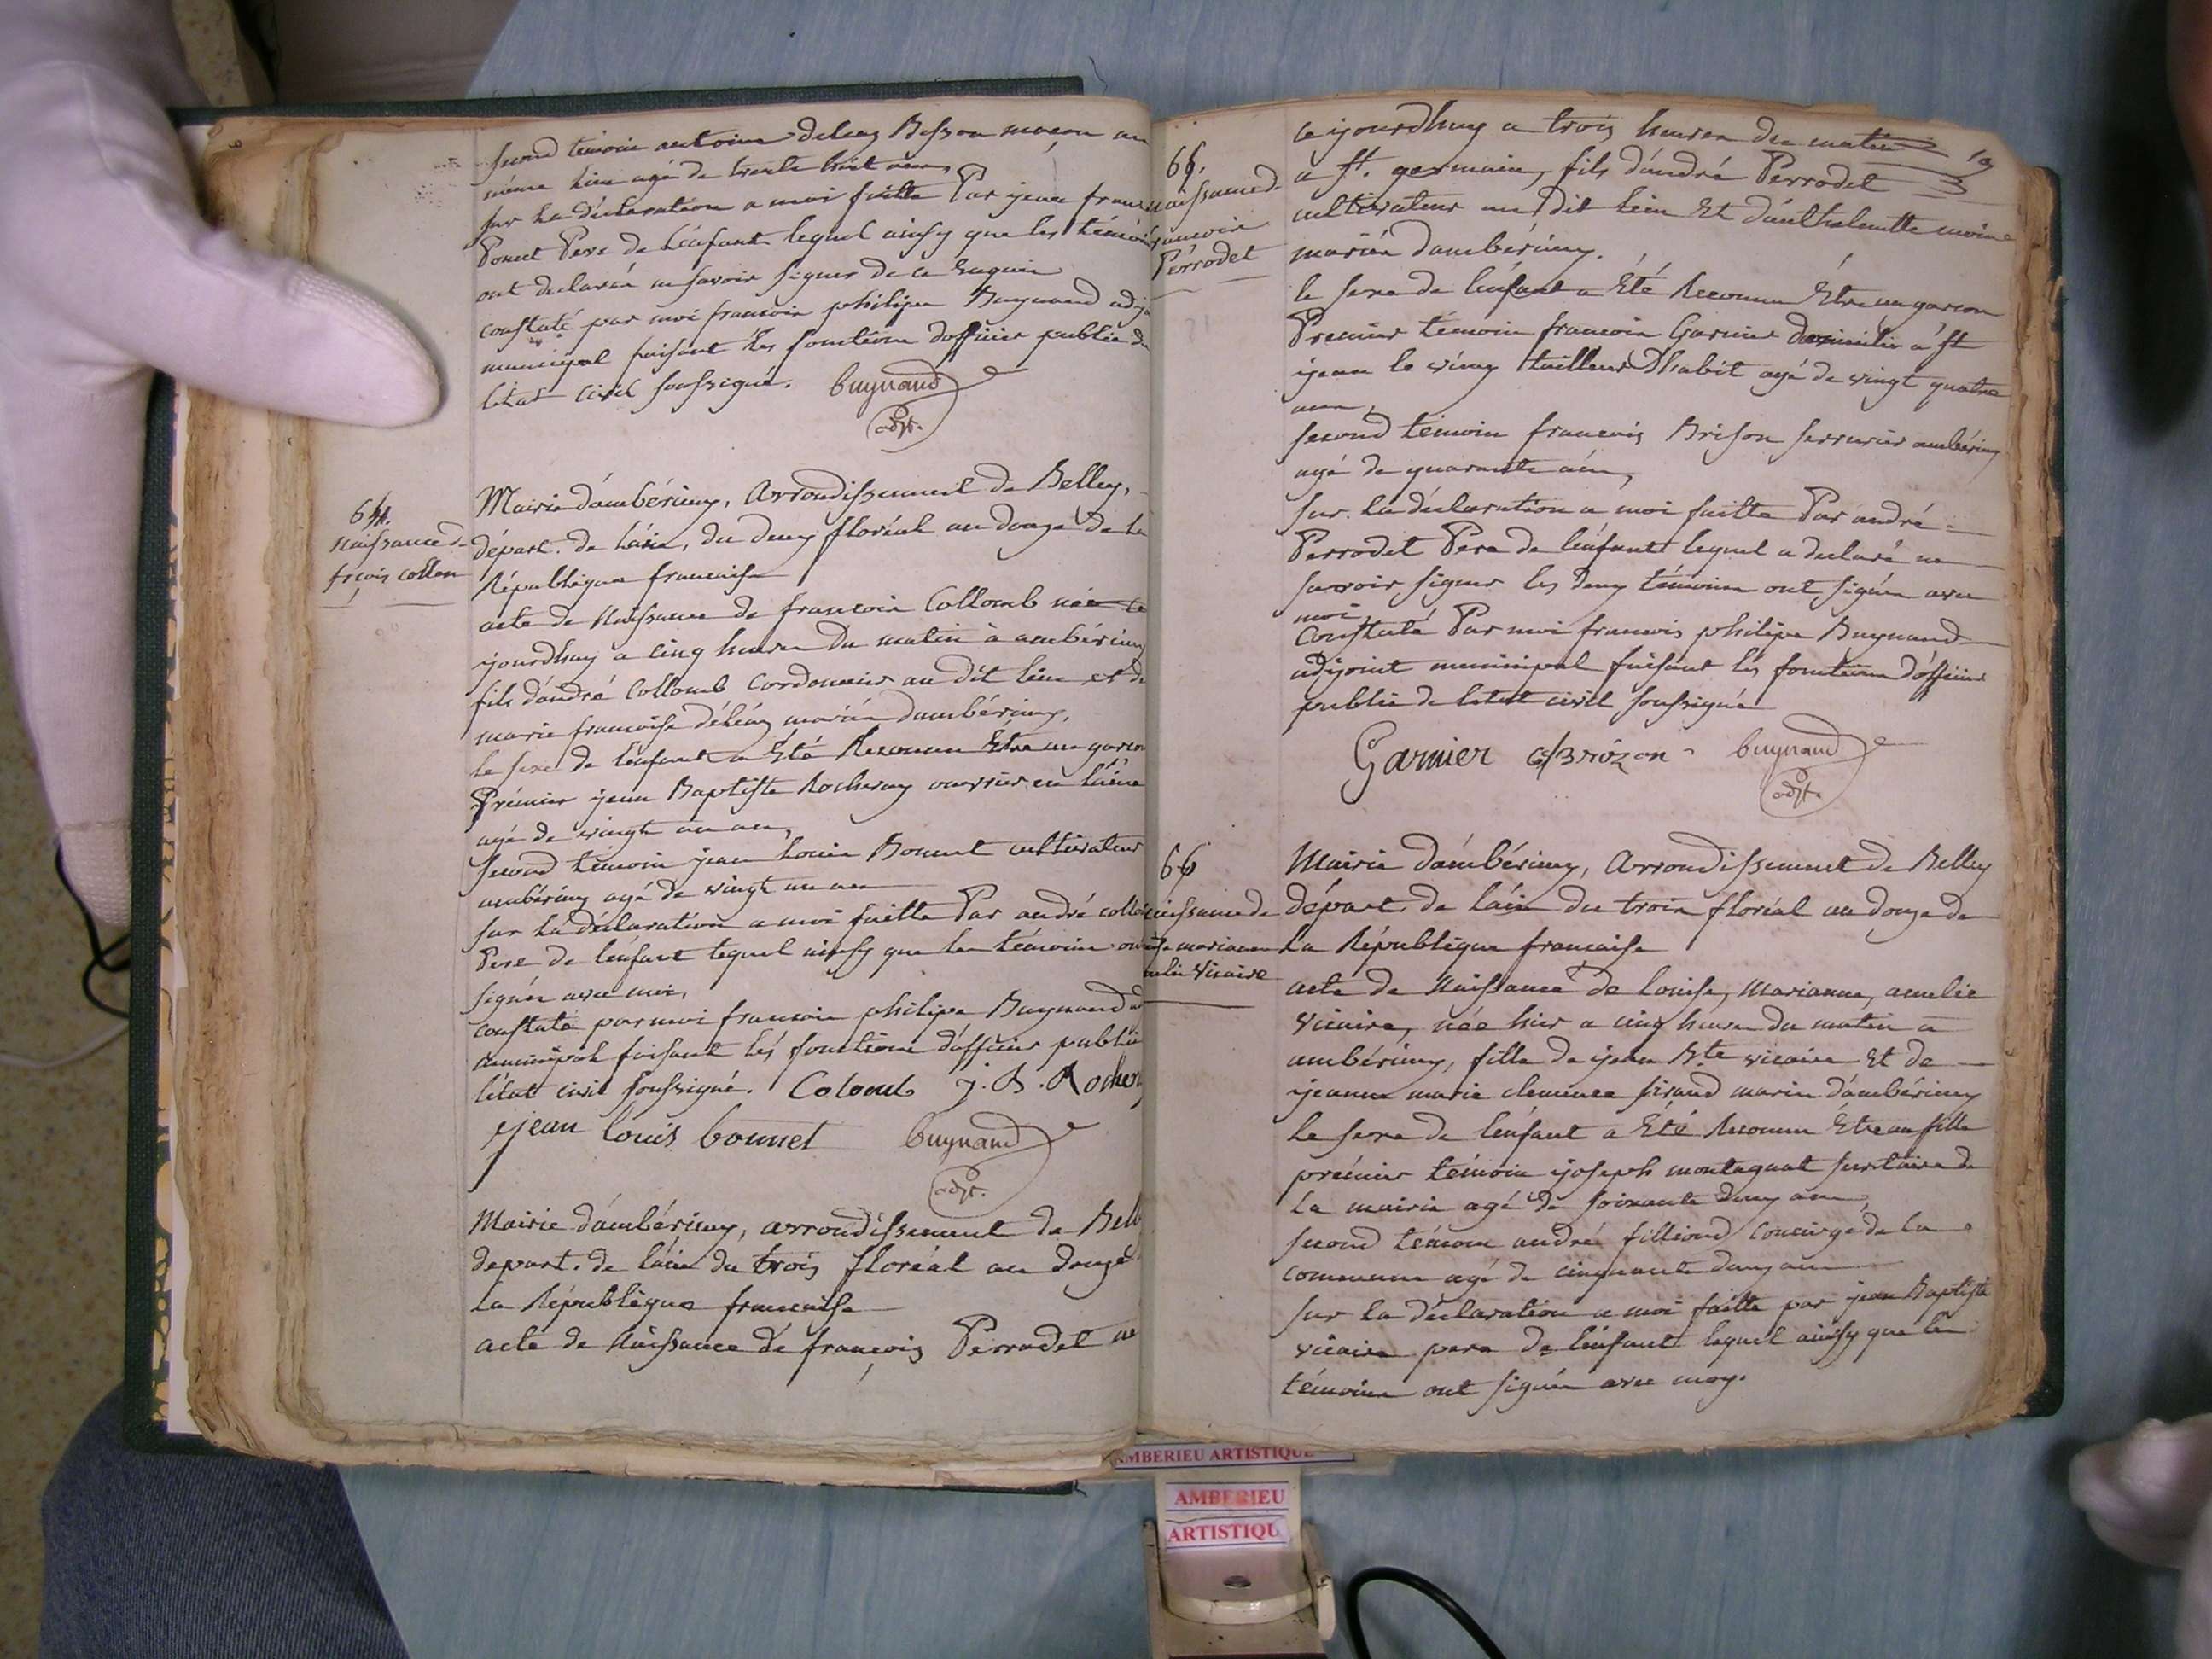 second témoin antoine deléaz Besson maçon au
même lieu agé de trente huit ans,
sur la déclaration a moi faitte Par jean franc
Ponet Pere de l'enfant lequel ainsy que les témoins
ont declaré ne savoir signer de ce Enquis
constaté par moi francois philipe Buynand adj
municipal faisant les fonctions d'officier public de
l'état civil soussigné. buynand
adjt.
64.
naissance de
frçois collon
Mairie d'ambérieux, arrondissement de Belley,
départ. de l'ain, du deux floréal an douze de la
République francaise
acte de Naissance de francois Collomb né ce
jourdhuy a cinq heures du matin à ambérieux
fils d'andré Collomb Cordonnier au dit lieu et de
marie francoise déléaz mariés d'ambérieux,
le sexe de l'enfant a Eté Reconnu Etre un garcon
Prémier jean Baptiste Rocheray ouvrier en laine
agé de vingt un an,
second témoin jean louis Bonnet cultivateur
ambérieux agé de vingt un an
sur la déclaration a moi faitte Par andré collo
Pere de l'enfant lequel ainsy que les témoins on
signés avec moi,
constaté par moi francois philipe Buynand ad
municipal faisant les fonctions d'officier public
l'état civil soussigné. Colomb j. B. Rocher
jean louis bonnet buynand
adjt.
Mairie d'ambérieux, arrondissement de Bell
départ. de l'ain du trois floréal an douze
la République francaise
acte de Naissance de françois Perrodet né
19
65.
naissance de
francois
Pérrodet
ce jourdhuy a trois heures du matin
a st. germain, fils d'andré Perrodet
cultivateur au dit lieu Et d'anthelmette moine
mariés d'ambérieux.
le sexe de l'enfant a Eté Reconnu Etre un garcon
Premier témoin francois Garnier domicilié a st
jean le vieux tailleur D'habit agé de vingt quatre
ans,
second temoin francois Brison serrurier ambérieux
agé de quarante ans,
sur la déclaration a moi faitte Par andré
Perrodet Pere de l'enfant lequel a declaré ne
savoir signer les deux témoins ont signés avec
moi,
Constaté Par moi francois philipe Buynand
adjoint municipal faisant les fonctions d'officier
public de l'état civil soussigné
Garnier Brizon buynand
adjt.
66
naissance de
ise marianne
amelie Vicaire
Mairie d'ambérieux, arrondissement de Belley
départ. de l'ain du trois floréal an douze de
La République francaise
acte de Naissance de louise, Marianne, amelie
Vicaire, née hier a cinq heures du matin a
ambérieux, fille de jean Bte vicaire Et de
jeanne marie clemence sirand mariés d'ambérieux
le sexe de l'enfant a Eté Reconnu Etre un fille
prémier témoin joseph montagnat secrétaire de
la mairie agé de soixante deux ans,
second témoin andré filliond Concierge de la
commune agé de cinquante deux ans
sur la déclaration a moi faitte par jean Baptiste
vicaire pere de l'enfant lequel ainsy que les
témoins ont signés avec moy.
AMBERIEU ARTISTIQUE
AMBERIEU
ARTISTIQU